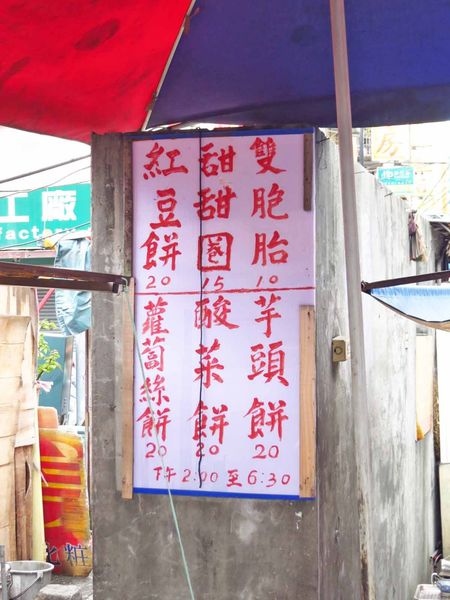 雙胞胎
10
甜甜圈
15
紅豆餅
20
芋頭餅
20
酸菜餅
20
蘿蔔絲餅
20
下午2:00至6:30
工廠
actory
化粧